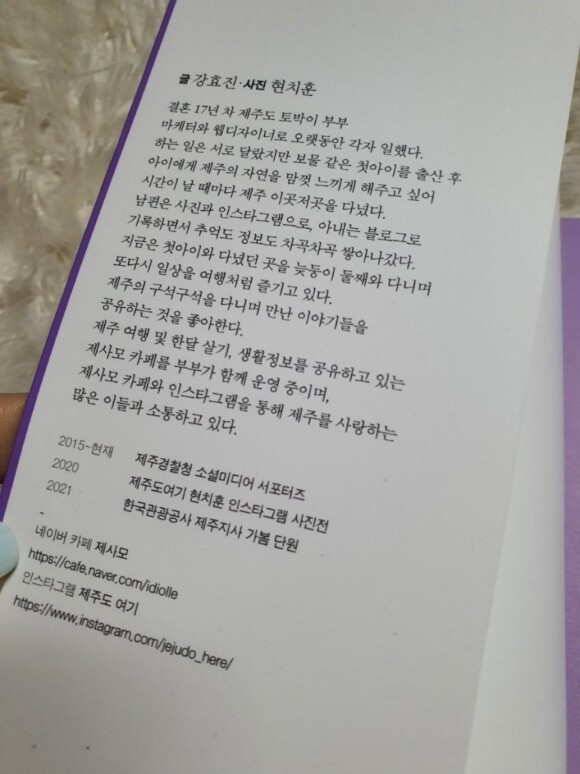 글 강효진·사진 현치훈
결혼 17년 차 제주도 토박이 부부
마케터와 웹디자이너로 오랫동안 각자 일했다.
하는 일은 서로 달랐지만 보물 같은 첫아이를 출산 후
아이에게 제주의 자연을 맘껏 느끼게 해주고 싶어
시간이 날 때마다 제주 이곳저곳을 다녔다.
남편은 사진과 인스타그램으로, 아내는 블로그로
기록하면서 추억도 정보도 차곡차곡 쌓아나갔다.
지금은 첫아이와 다녔던 곳을 늦둥이 둘째와 다니며
또다시 일상을 여행처럼 즐기고 있다.
제주의 구석구석을 다니며 만난 이야기들을
공유하는 것을 좋아한다.
제주 여행 및 한달 살기, 생활정보를 공유하고 있는
제사모 카페를 부부가 함께 운영 중이며,
제사모 카페와 인스타그램을 통해 제주를 사랑하는
많은 이들과 소통하고 있다.
2015~현재 제주경찰청 소셜미디어 서포터즈
2020 제주도여기 현치훈 인스타그램 사진전
2021 한국관광공사 제주지사 가봄 단원
-
네이버 카페 제사모
https://cafe.naver.com/idiolle
인스타그램 제주도 여기
https://www.instagram.com/jejudo_here/